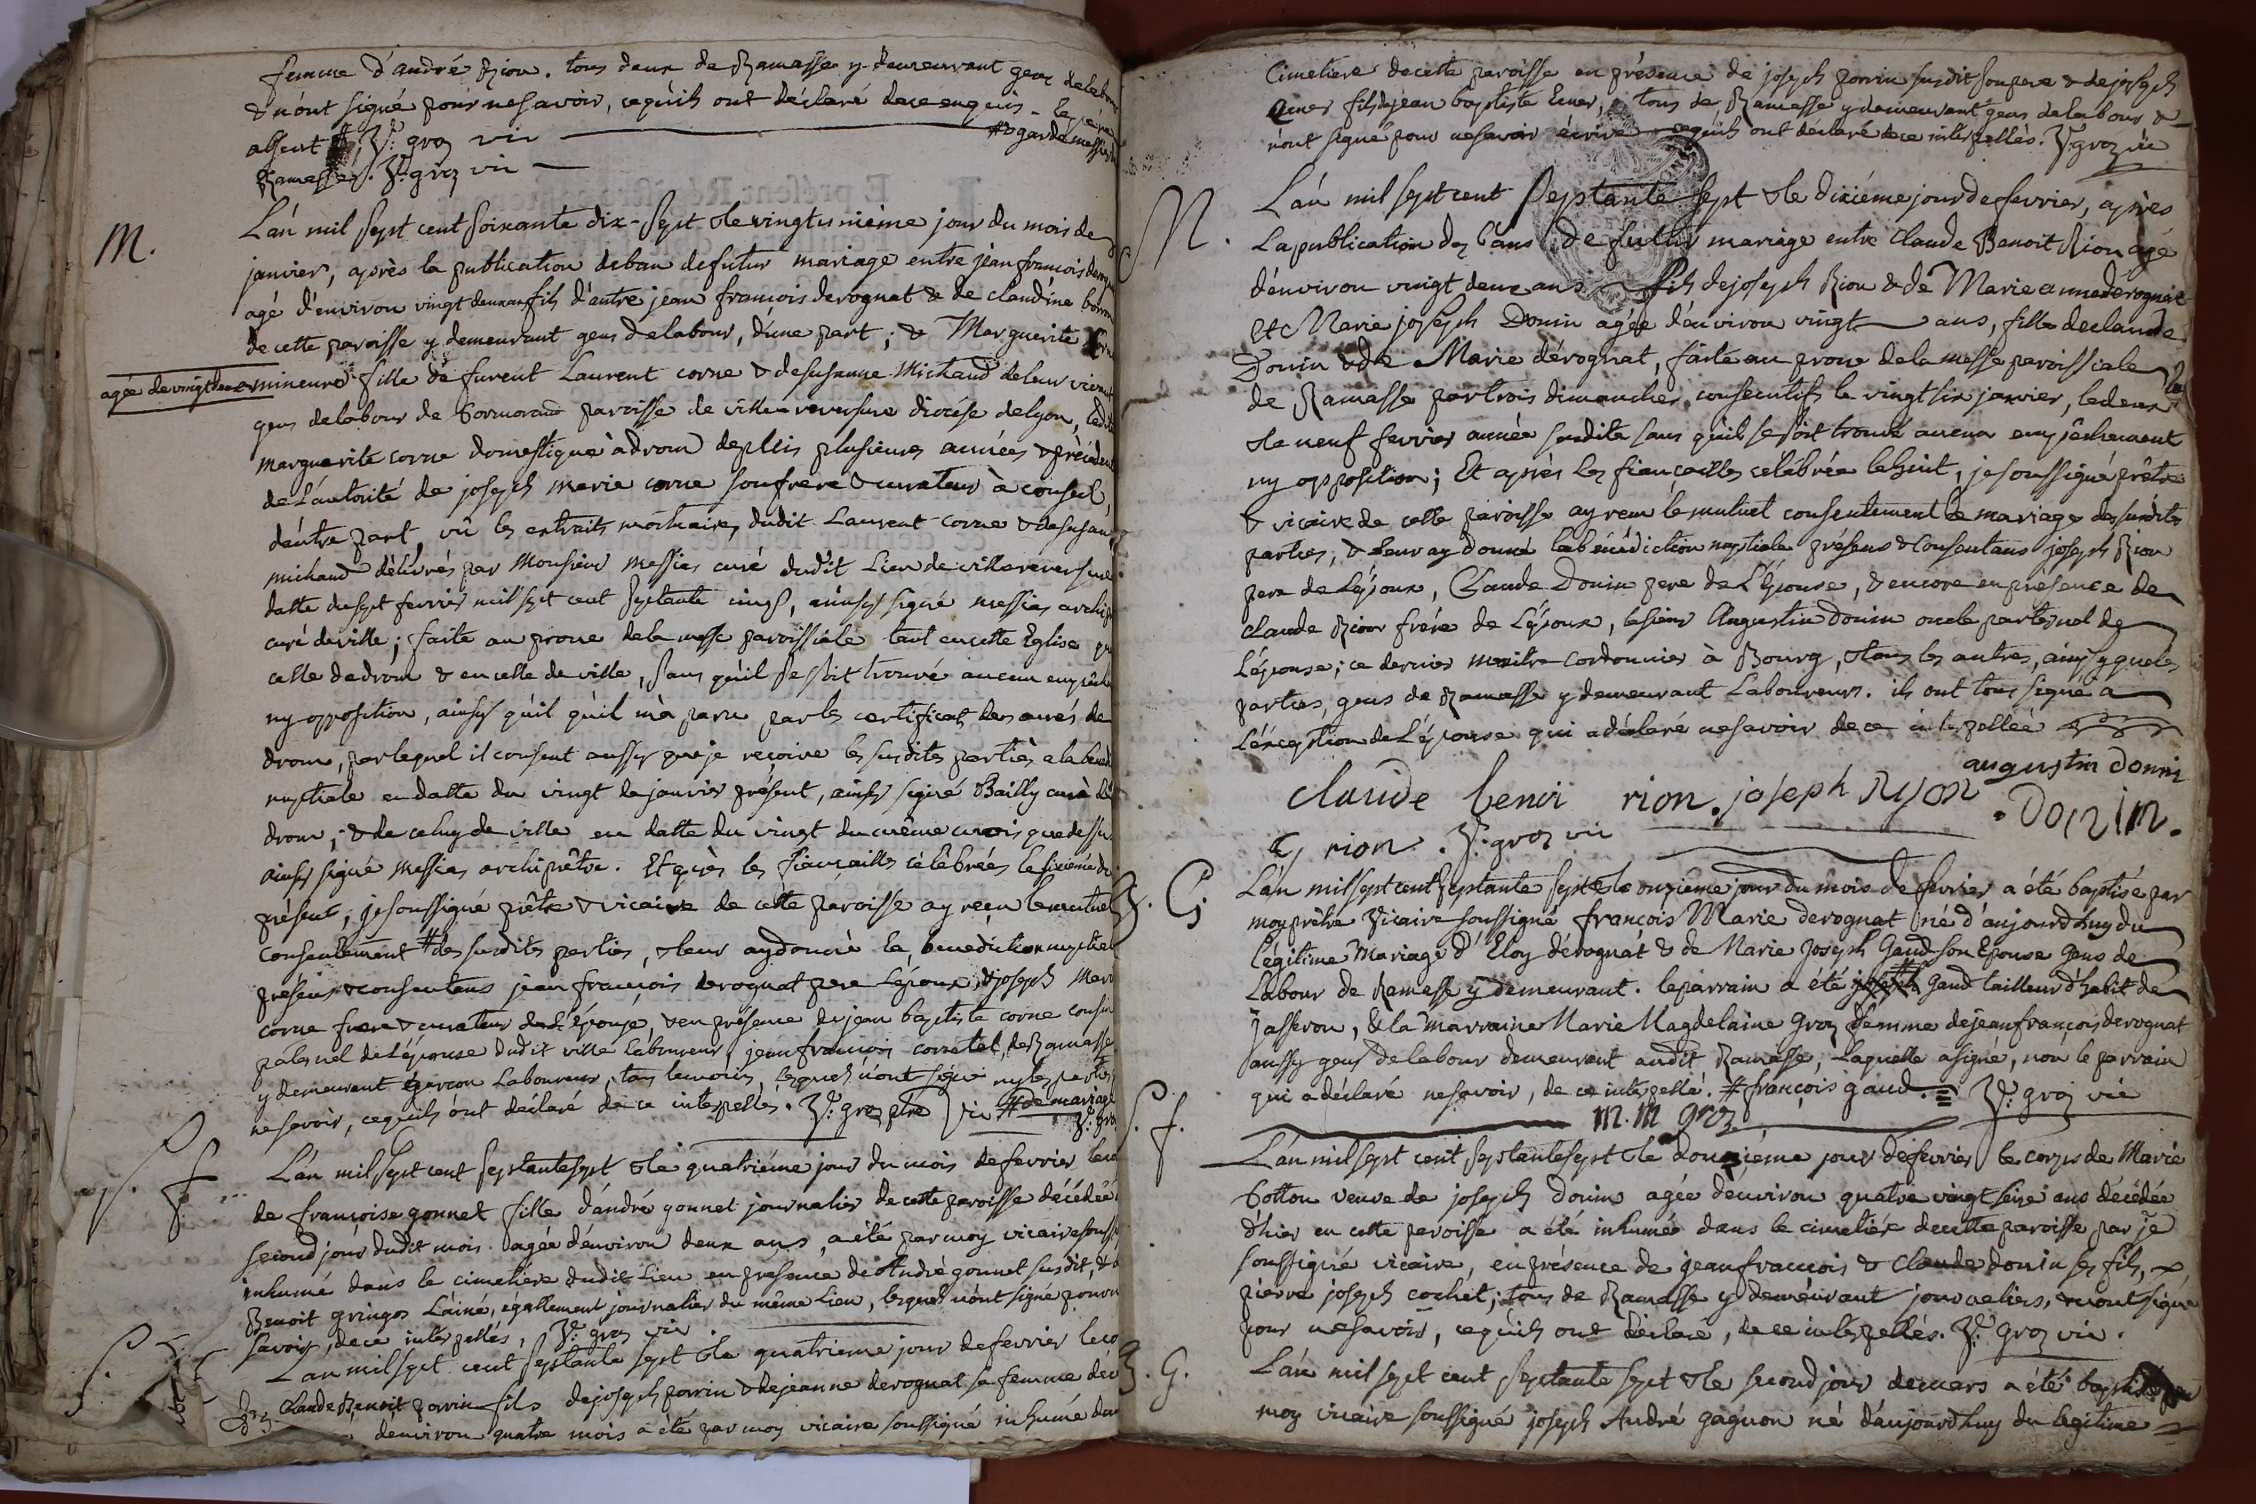 femme d'andré Rion. tous deux de Ramasse y demeurant gens de labour
& n'ont signé pour ne savoir, ce qu'ils ont déclaré de ce enquis. le père
absent # J. groz vic # & garde messier
Ramasse. J. groz vic
M.
L'an mil sept cent soixante dix-sept & le vingt unième jour du mois de
janvier, après la publication de ban de futur mariage entre jean francois
agé d'environ vingt deux ans fils d'autre jean francois derognat & de claudine
de cette paroisse y demeurant gens de labour, d'une part; & Marguerite
agée de vingt deux mineure fille de furent Laurent corne & de susanne Michaud de leur vivant
gens de labour de paroisse de ville reversure diocèse de lyon,
marguerite corne domestique à drom depuis plusieurs années &
de l'autorité de joseph marie corne son frere & curateur à conseil,
d'autre part, vû les extraits mortuaires dudit Laurent corne &
michaud délivrés par Monsieur Messias curé dudit Lieu de ville reversure
datte du sept fevrier mil sept cent septante cinq, ainsy signé messias
curé de ville; faite au prone de la messe paroissiale tant en cette Eglise
celle de drom & en celle de ville, sans qu'il se soit trouvé aucun
ny opposition, ainsy qu'il qu'il m'a paru par les certificats des curés de
drom, par lequel il consent aussy que je reçoive les susdites parties a la
nuptiale en datte du vingt de janvier présent, ainsy signé Bailly curé de
drom; & de celuy de ville en datte du vingt du même mois que dessus
ainsy signé Messias archiprêtre. Et après les fiançailles célèbrées le
présent; je soussigné prêtre & vicaire de cette paroisse ay reçu le mutuel
consentement # des susdites parties, & leur ay donné la bénédiction nuptiale
présens & consentans jean francois derognat pere de l'époux, & joseph Marie
corne frere & curateur de l'épouse, & en présence de jean baptiste corne cousin
paternel de l'épouse dudit ville laboureur, jean francois de Ramasse
y demeurant garçon Laboureur, tous temoins, lesquels n'ont signé ny les parties
ne savoir, ce qu'ils ont déclaré de ce interpellés. J. groz ptre vic # de mariage
J. groz
S. f.
L'an mil sept cent septante sept & le quatrième jour du mois de fevrier
de françoise gonnet fille d'andré gonnet journalier de cette paroisse décédée
second jour dudit mois agée d'environ deux ans, a été par moy vicaire
inhumé dans le cimetière dudit Lieu en présence de André gonnet susdit, &
Benoit gringoz L'ainé, egallement journalier du même Lieu, lesquels n'ont signé pour ne
savoir, de ce interpellés, J. groz vic
S.
L'an mil sept cent septante sept & le quatrième jour de fevrier
Claude Benoit porrin fils de joseph porrin & de jeanne derognat sa femme
d'environ quatre mois a été par moy vicaire soussigné inhumé dans
Cimetiere de cette paroisse en présence de joseph porrin susdit son pere & de joseph
fils de jean baptiste tous de Ramasse y demeurant gens de labour &
n'ont signé pour ne savoir écrire ce qu'ils ont déclaré de ce interpellés. J. groz vic
M.
L'an mil sept cent septante sept & le dixième jour de fevrier, après
La publication des bans de futur mariage entre Claude Benoit Rion agé
d'environ vingt deux ans fils de joseph Rion & de Marie anne derognat
et Marie joseph Donin agée d'environ vingt ans, fille de claude
Donin & de Marie dérognat, faite au prone de la messe paroissiale
de Ramasse par trois dimanches consecutifs le vingt six janvier, le deux
& le neuf fevrier année susdite sans qu'il se soit trouvé aucun empêchement
ny opposition; Et après les fiançailles celébrée le huit, je soussigné prêtre
& vicaire de cette paroisse ay reçu le mutuel consentement de mariage des susdites
parties, & leur ay donné la bénédiction nuptiale présens & consentans joseph Rion
pere de l'époux, Claude Donin pere de l'épouse, & encore en présence de
claude Rion frère de l'époux, le sieur Augustin donin oncle paternel de
l'épouse; ce dernier maitre cordonnier à Bourg, & tous les autres, ainsy que les
parties, gens de Ramasse y demeurant Laboureurs. ils ont tous signé a
l'exception de l'épouse qui a déclaré ne savoir de ce interpellée
augustin donin
claude benoi rion. joseph Ryon . Donin.
C rion. J. groz vic
B. G.
L'an mil sept cent septante sept & le onzième jour du mois de fevrier a été baptisé par
moy prêtre Vicaire soussigné françois Marie derognat né d'aujourd'huy du
légitime Mariage d'Eloy dérognat & de Marie Joseph Gaud son Epouse Gens de
Labour de Ramasse y demeurant. le parrain a été Gaud tailleur d'habit de
Jasseron, & la marraine Marie Magdelaine Groz femme de jean françois derognat
aussy gens de labour demeurant audit Ramasse, laquelle a signé, non le parrain
qui a déclaré ne savoir, de ce interpellé. # françois gaud. J. groz vic
m. m groz
S. f.
L'an mil sept cent septante sept & le douzième jour de fevrier le corps de Marie
Cotton veuve de joseph donin agée d'environ quatre vingt seize ans décédée
d'hier en cette paroisse a été inhumée dans le cimetière de cette paroisse par je
soussigné vicaire, en présence de jean francois & Claude donin ses fils, &
pierre joseph cochet; tous de Ramasse y demeurant journaliers, & n'ont signé
pour ne savoir, ce qu'ils ont déclaré, de ce interpellés. J. groz vic.
B. G.
L'an mil sept cent septante sept & le second jour de mars a été baptisé par
moy vicaire soussigné joseph André gagnon né d'aujourd'huy du legitime